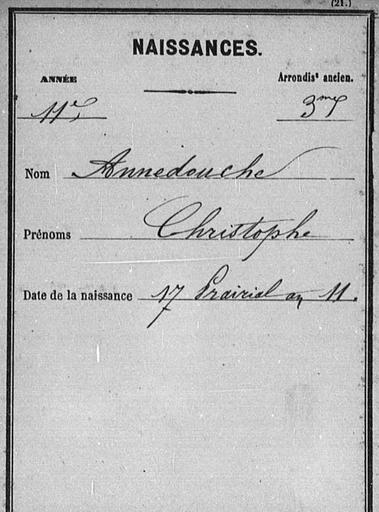 (21.)
NAISSANCES.
ANNÉE
Arrondist ancien.
11e
3me
Nom Annedouche
Prénoms Christophe
Date de la naissance 17 Prairial an 11.